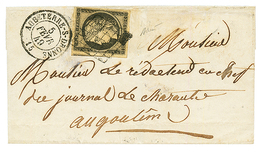 AUBETERRE-S-DRONNE
5
FEVR
49
Monsieur
Monsieur le rédacteur en chef
du journal le charentais
angoulême